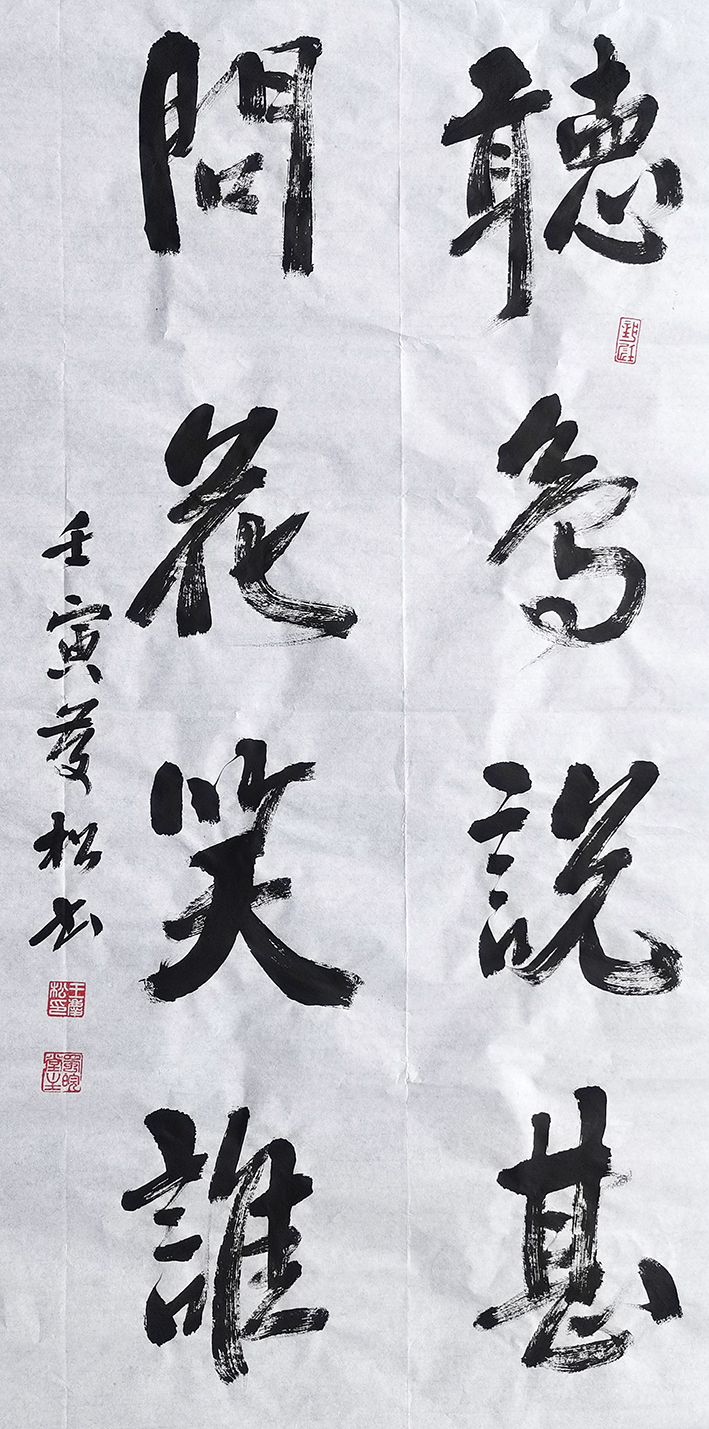 聽鳥說甚
問花笑誰
壬寅 松书